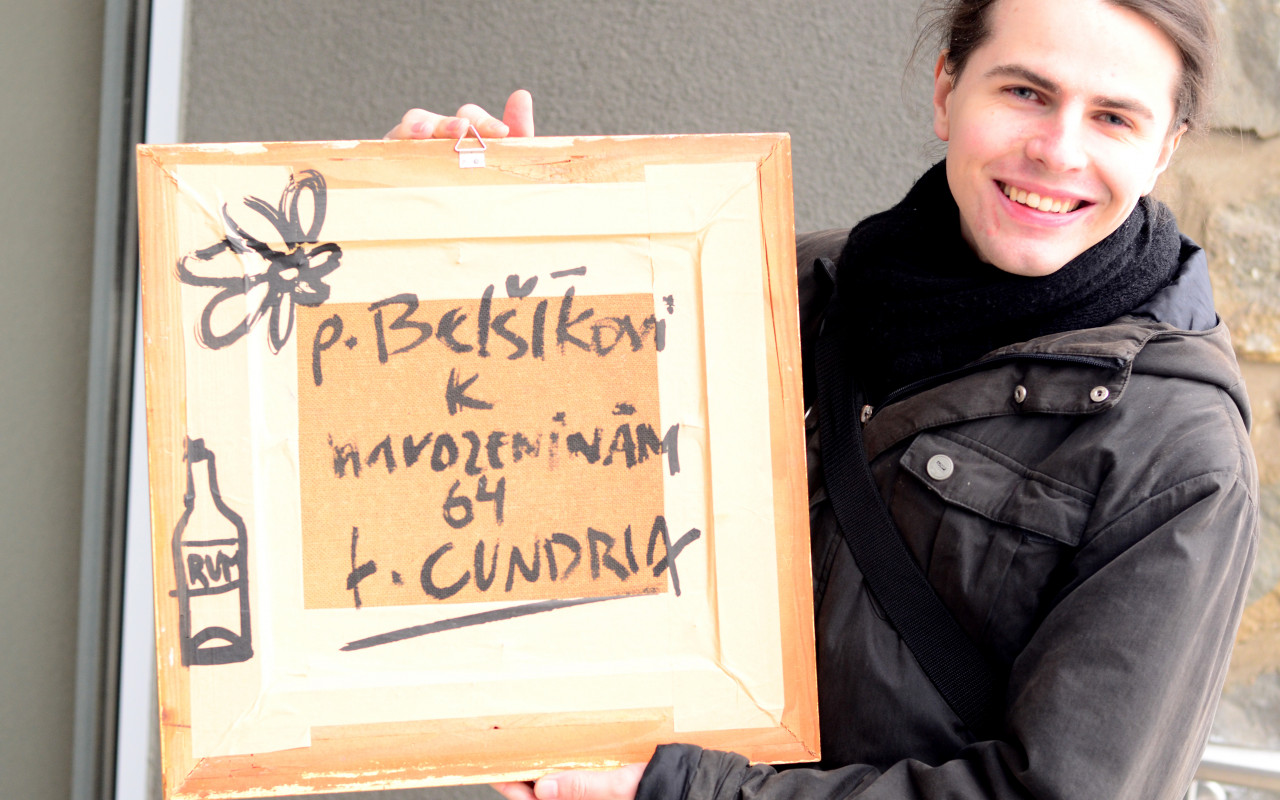 p. Belšíkovi
k
narozeninám
64
f. CUNDRIA
RUM